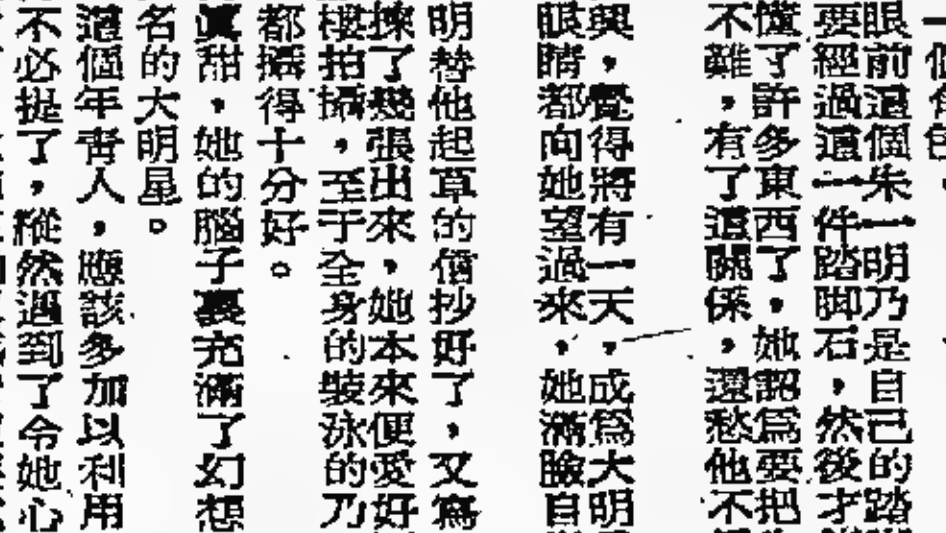 一個角色，
眼前這個朱一明乃是自己的踏
要經過這一件踏脚石，然後才
懂了許多東西了，她認爲要把
不難，有了這關係，還愁他不
興，覺得將有一天，成爲大明
眼睛都向她望過來，她滿臉自
明替他起草的信抄好了，又寫
揀了幾張出來，她本來便愛好
樓拍攝，至于全身的裝泳的乃
都攝得十分好。
眞甜，她的腦子裏充滿了幻想
名的大明星。
這個年靑人，應該多加以利用
不必提了，縱然遇到了令她心